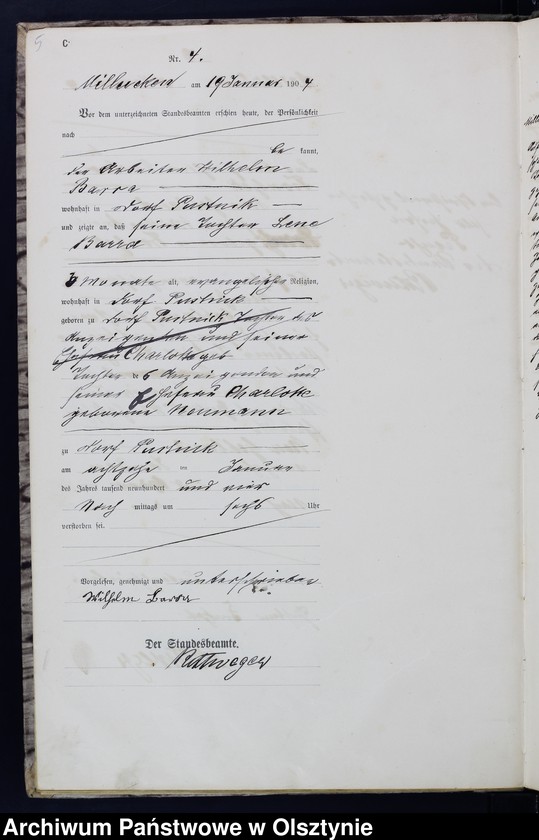 5
C
Nr. 4.
am 19 Januar 1904
Vor dem unterzeichneten Standesbeamten erschien heute, der Persönlichkeit
nach
be kannt,
der Arbeiter Wilhelm
Barra
wohnhaft in Dorf Pustnik
und zeigte an, daß seine Tochter Lene
Barra
Monate alt, evangelischer Religion,
wohnhaft in Dorf Pustnick
geboren zu Dorf Pustnick Tochter des
Anzeigenden und seiner
Ehefrau Charlotte geb
Tochter des Anzeigenden und
seiner Ehefrau Charlotte
geborene Neumann
zu Dorf Pustnick
am achtzehn ten Januar
des Jahres tausend neunhundert und vier
Nach mittags um sechs Uhr
verstorben sei.
Vorgelesen, genehmigt und unterschrieben
Wilhelm Barra
Der Standesbeamte.
Archiwum Państwowe w Olsztynie